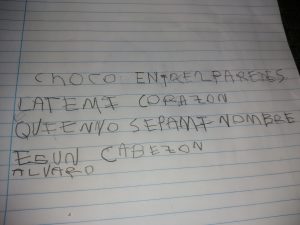 CHOCO ENTRE2PAREDES
LATEMI CORAZON
QUIENNO SEPAMI NOMBRE
ESUN CABEZON
ALVARO